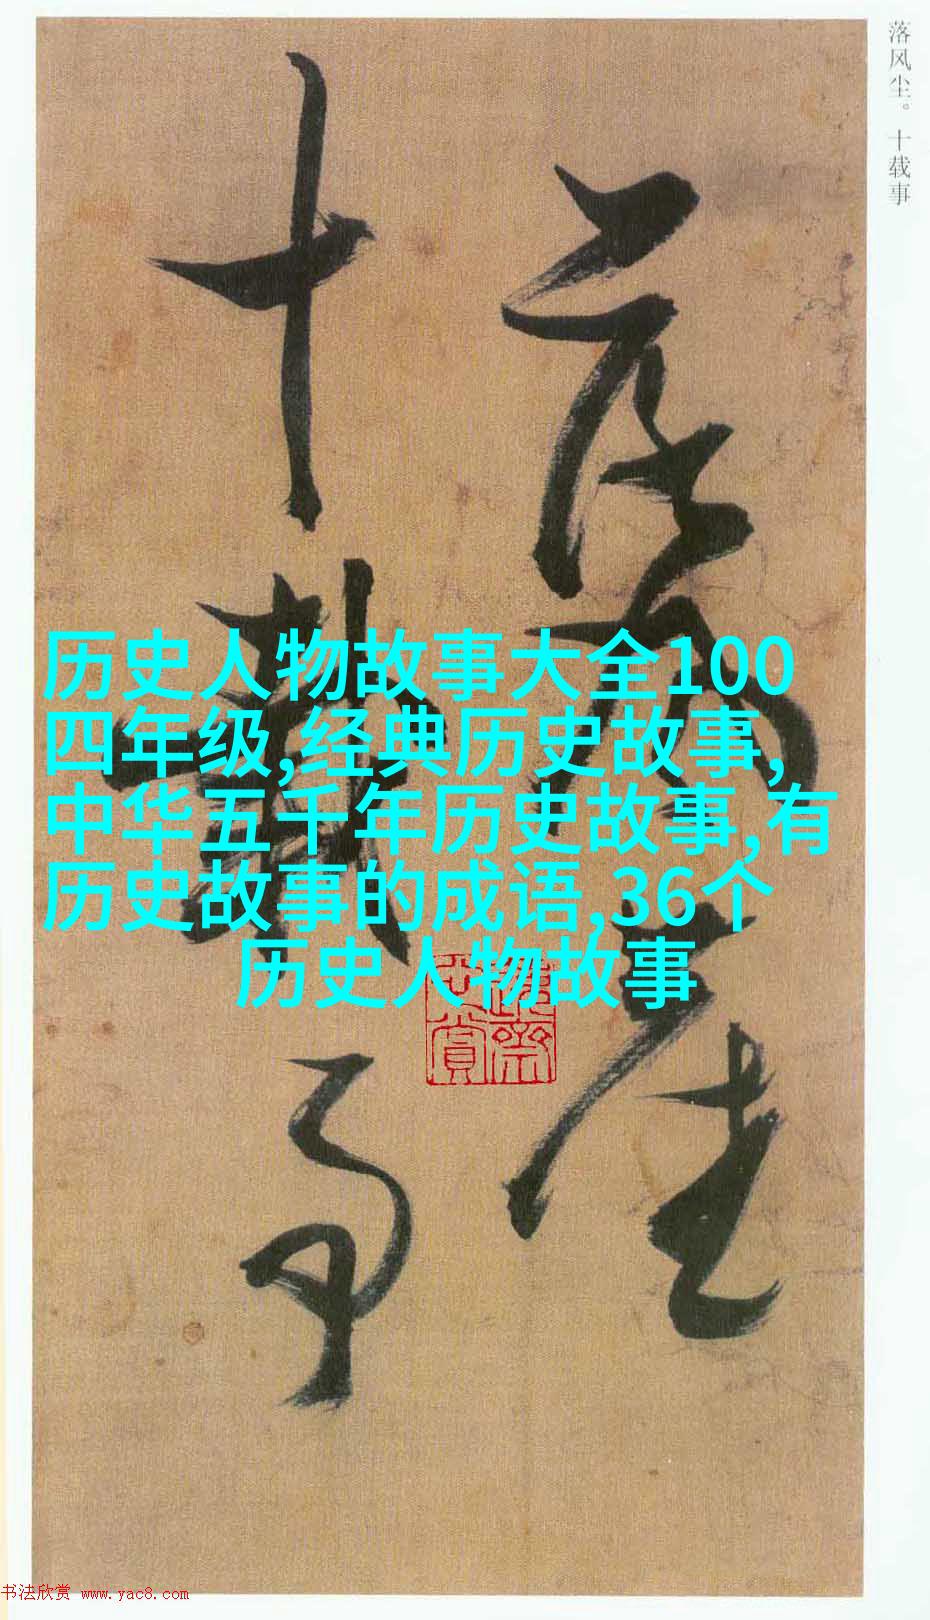 落风尘。十载事
落风尘
十载事
历史人物故事大全100
四年级,经典历史故事,
中华五千年历史故事,有
历史故事的成语,36个
历史人物故事
书法欣赏 www.yac8.com